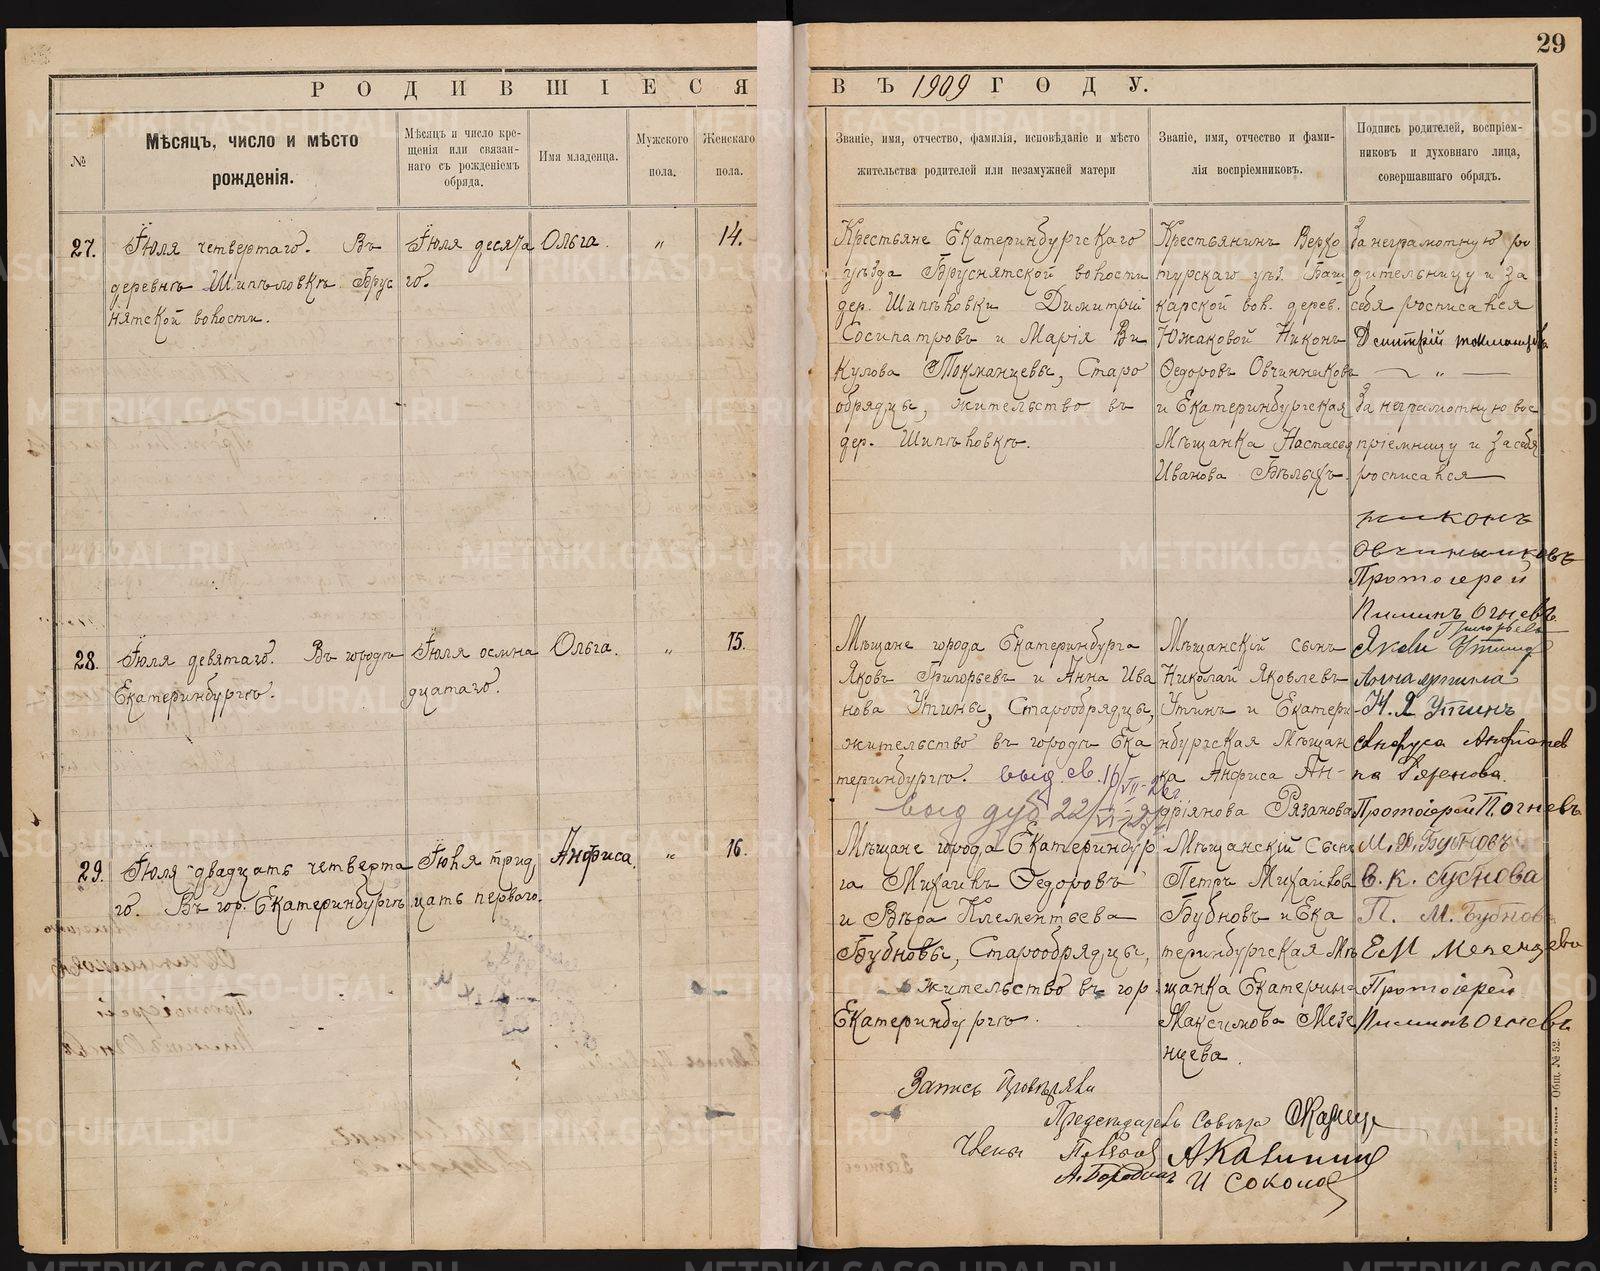 29
РОДИВШІЕСЯ ВЪ 1909 ГОДУ.
№
Мѣсяцъ, число и мѣсто
рожденія.
Мѣсяцъ и число кре-
щенія или связан-
наго съ рожденіемъ
обряда.
Имя младенца.
Мужского
пола.
Женскаго
пола.
Званіе, имя, отчество, фамилія, исповѣданіе и мѣсто
жительства родителей или незамужней матери
Званіе, имя, отчество и фами-
лія воспріемниковъ.
Подпись родителей, воспріем-
никовъ и духовнаго лица,
совершавшаго обрядъ.
27.
Іюля четвертаго. Въ
деревнѣ Шипѣловкѣ Брус
нятской волости.
Іюля десята
го.
Ольга.
„
14.
Крестьяне Екатеринбургскаго
уѣзда Бруснятской волости
дер. Шипѣловки Димитрій
Сосипатровъ и Марія Ви
кулова Токманцевы, Старо
обрядцы, жительство въ
дер. Шипѣловкѣ.
Крестьянинъ Верхо
турскаго уѣз. Баш
карской вол. дерев.
Южаковой Никонъ
Ѳедоровъ Овчинниковъ
и Екатеринбургская
Мѣщанка Настасея
Иванова Бѣлыхъ.
За неграмотную ро
дительницу и за
себя росписался
Дмитрій
— „ —
За неграмотную вос
пріемницу и за себя
росписался
никонъ
овчинниковъ
Протоіерей
Пименъ Огневъ
28.
Іюля девятаго. Въ городѣ
Екатеринбургѣ.
Іюля осмна
дцатаго.
Ольга.
„
15.
Мѣщане города Екатеринбурга
Яковъ Григорьевъ и Анна Ива
нова Утины, Старообрядцы,
жительство въ городѣ Ека
теринбургѣ.
выд св. 16/VII-
выд дуб 22/
Мѣщанскій сынъ
Николай Яковлевъ
Утинъ и Екатери
нбургская Мѣщан
ка Анфиса Ан-
дріянова Рязанова
Яковъ
Анна утина
Н. Я Утинъ
Анфуса
на Рязанова.
Протоіерей П Огневъ
29.
Іюля двадцать четверта
го. Въ гор. Екатеринбургѣ.
Іюля трид
цать перваго.
Анфиса.
„
16.
Мѣщане города Екатеринбур
га Михаилъ Ѳедоровъ
и Вѣра Клементьева
Бубновы, Старообрядцы,
жительство въ гор
Екатеринбургѣ.
Мѣщанскій Сынъ
Петръ Михайловъ
Бубновъ и Ека
теринбургская Мѣ
щанка Екатерина
Максимова Мезе
нцева.
М. Ф. Бубновъ
В. К. Бубнова
П. М. Бубновъ
ЕМ Мезенцева
Протоіерей
Пименъ Огневъ
Запись провѣряли
Предсѣдатель Совѣта
Члены
А. Бородинъ
А Калинин
И Соколов
Общ. № 52.
METRIKI.GASO-URAL.RU